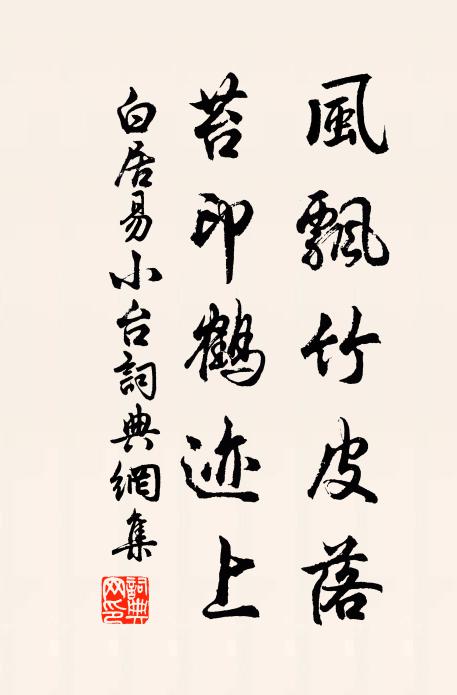 風飄竹皮落
苔印鶴迹上
白居易小台詞典網集
詞典
网印